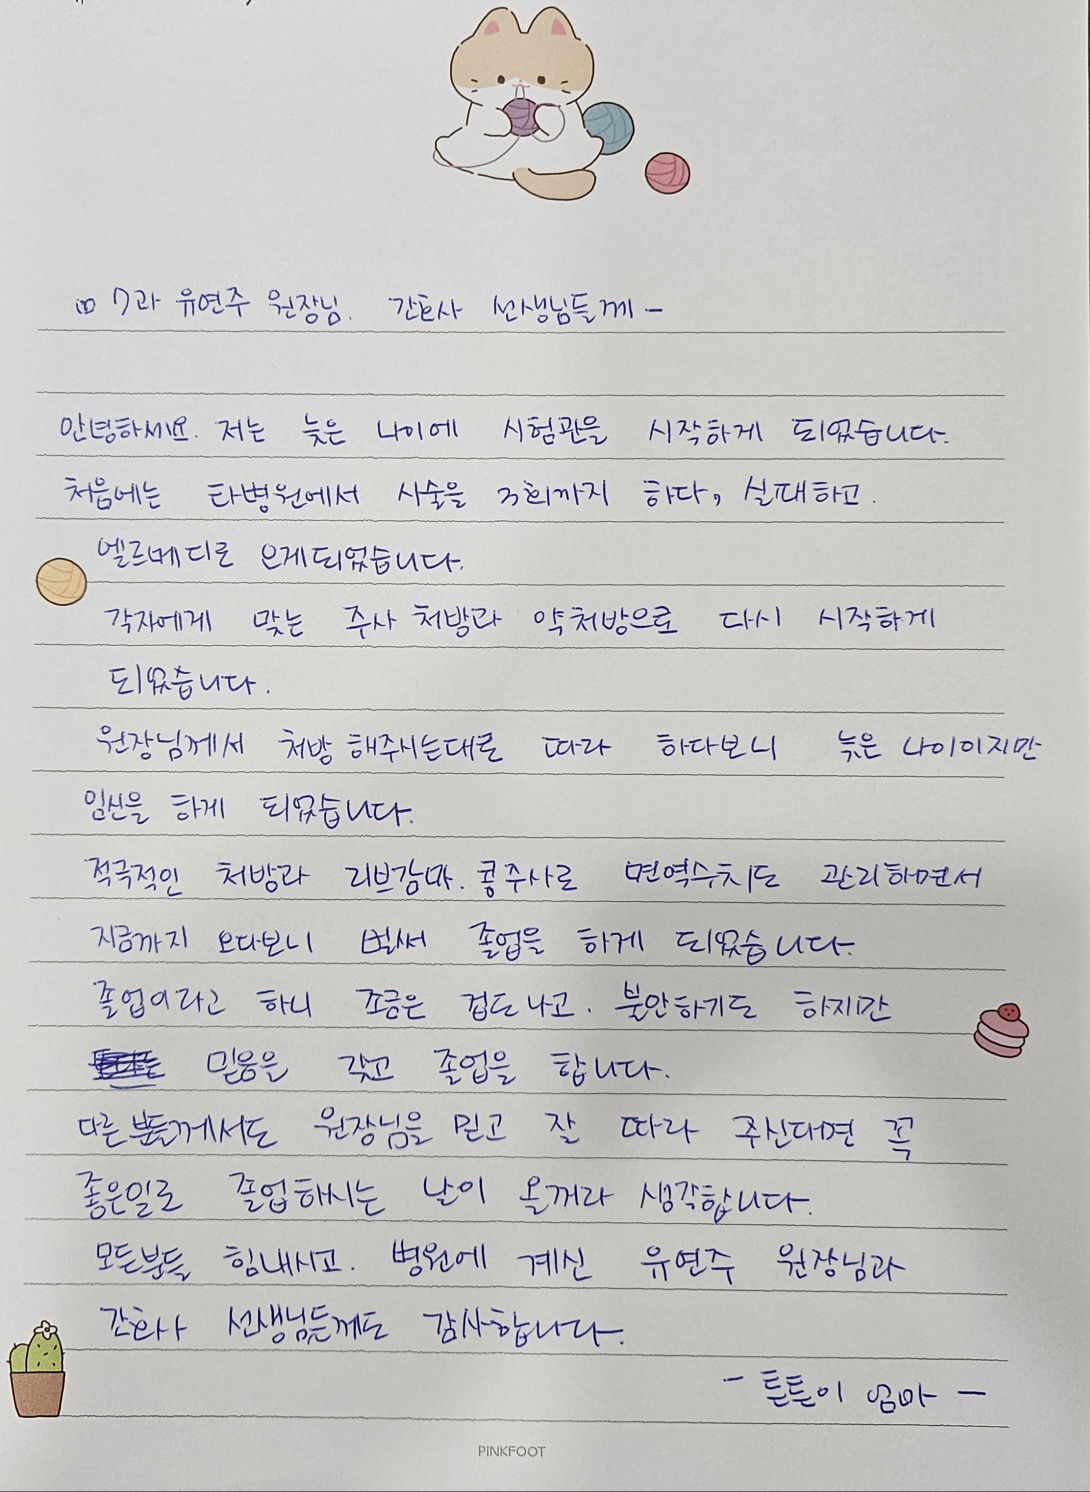 7과 유연주 원장님. 간호사 선생님들께 -
안녕하세요. 저는 늦은 나이에 시험관을 시작하게 되었습니다.
처음에는 타병원에서 시술을 3회까지 하다, 실패하고.
엘르메디로 오게되었습니다.
각자에게 맞는 주사 처방과 약처방으로 다시 시작하게
되었습니다.
원장님께서 처방 해주시는대로 따라 하다보니 늦은 나이이지만
임신을 하게 되었습니다.
적극적인 처방과 리브감마. 콩주사로 면역수치도 관리하면서
지금까지 오다보니 벌써 졸업을 하게 되었습니다.
졸업이라고 하니 조금은 겁도나고. 불안하기도 하지만
믿음을 갖고 졸업을 합니다.
다른분들께서도 원장님을 믿고 잘 따라 주신다면 꼭
좋은일로 졸업하시는 날이 올꺼라 생각합니다.
모든분들 힘내시고. 병원에 계신 유연주 원장님과
간호사 선생님들께도 감사합니다.
- 튼튼이 엄마 -
PINKFOOT